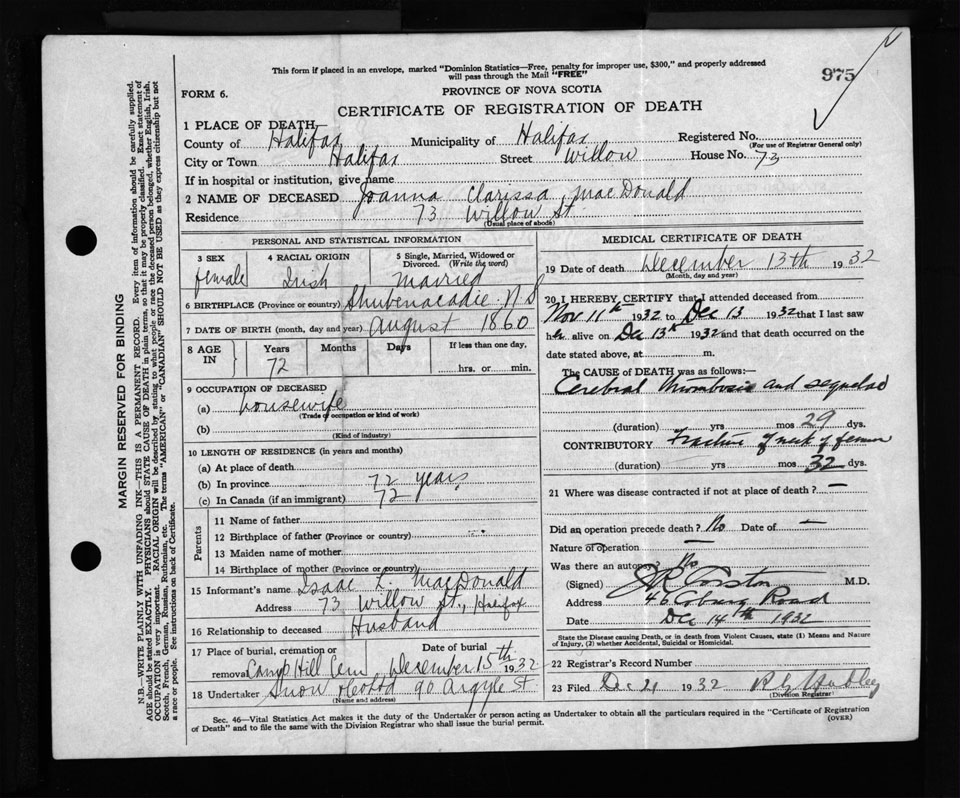 This form if placed in an envelope, marked "Dominion Statistics—Free, penalty for improper use, $300," and properly addressed
will pass through the Mail "FREE"
975
FORM 6.
PROVINCE OF NOVA SCOTIA
CERTIFICATE OF REGISTRATION OF DEATH
1 PLACE OF DEATH
County of Halifax Municipality of Halifax Registered No.
(For use of Registrar General only)
City or Town Halifax Street Willow House No. 73
If in hospital or institution, give name
2 NAME OF DECEASED Joanna Clarissa MacDonald
Residence 73 Willow St.
(Usual place of abode)
PERSONAL AND STATISTICAL INFORMATION
3 SEX 4 RACIAL ORIGIN 5 Single, Married, Widowed or
Divorced. (Write the word)
female Irish Married
6 BIRTHPLACE (Province or country) Shubenacadie N S
7 DATE OF BIRTH (month, day and year) August 1860
8 AGE IN Years Months Days If less than one day,
72 hrs. or min.
9 OCCUPATION OF DECEASED
(a) housewife
(Trade, occupation or kind of work)
(b)
(Kind of industry)
10 LENGTH OF RESIDENCE (in years and months)
(a) At place of death
(b) In province 72 years
(c) In Canada (if an immigrant) 72
Parents
11 Name of father
12 Birthplace of father (Province or country)
13 Maiden name of mother
14 Birthplace of mother (Province or country)
15 Informant's name Isaac L. MacDonald
Address 73 Willow St., Halifax
16 Relationship to deceased Husband
17 Place of burial, cremation or Date of burial
removal Camp Hill Cem December 15th 1932
18 Undertaker Snow 90 Argyle St
(Name and address)
MEDICAL CERTIFICATE OF DEATH
19 Date of death December 13th 1932
(Month, day and year)
20 I HEREBY CERTIFY that I attended deceased from
Nov 11th 1932 to Dec 13 1932 that I last saw
her alive on Dec 13th 1932 and that death occurred on the
date stated above, at m.
The CAUSE of DEATH was as follows:
Cerebral Thrombosis and sequelae
(duration) yrs mos 29 dys.
CONTRIBUTORY Fracture of neck of femur
(duration) yrs mos 32 dys.
21 Where was disease contracted if not at place of death? —
Did an operation precede death? No Date of —
Nature of operation —
Was there an autopsy? No
(Signed) M.D.
Address 46 Coburg Road
Date Dec 14th 1932
State the Disease causing Death, or in death from Violent Causes, state (1) Means and Nature
of Injury, (2) whether Accidental, Suicidal or Homicidal.
22 Registrar's Record Number
23 Filed Dec 21 1932
(Division Registrar)
Sec. 46—Vital Statistics Act makes it the duty of the Undertaker or person acting as Undertaker to obtain all the particulars required in the "Certificate of Registration
of Death" and to file the same with the Division Registrar who shall issue the burial permit.
(OVER)
MARGIN RESERVED FOR BINDING
N.B.—WRITE PLAINLY WITH UNFADING INK—THIS IS A PERMANENT RECORD. Every item of information should be carefully supplied.
AGE should be stated EXACTLY. PHYSICIANS should STATE CAUSE OF DEATH in plain terms, so that it may be properly classified. Exact statement of
OCCUPATION is very important. RACIAL ORIGIN will be described by stating to what people or race the deceased person belonged, whether English, Irish,
Scotch, French, German, Russian, Ruthenian, etc. The terms "AMERICAN" or "CANADIAN" SHOULD NOT BE USED as they express citizenship but not
a race or people. See instructions on back of Certificate.